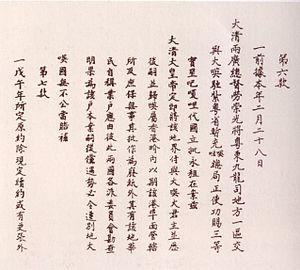 第六款
一前據本年二月二十八日
大清兩廣總督勞崇光將粵東九龍司地方一區交
與大英駐紮粵省暫充英咈總局正使功賜三等
寶星吧嗄哩代國立批永租在案茲
大清大皇帝定即將該地界付與大英大君主並歷
後嗣並歸英屬香港界內以期該港埠面管轄
所及庶保無事其批作為廢紙外其有該地華
民自稱業戶應由彼此兩國各派委員會勘查
明果為該戶本業嗣後倘遇勢必令遷別地大
英國無不公當賠補
第七款
一戊午年所定原約除現定續約或有更張外